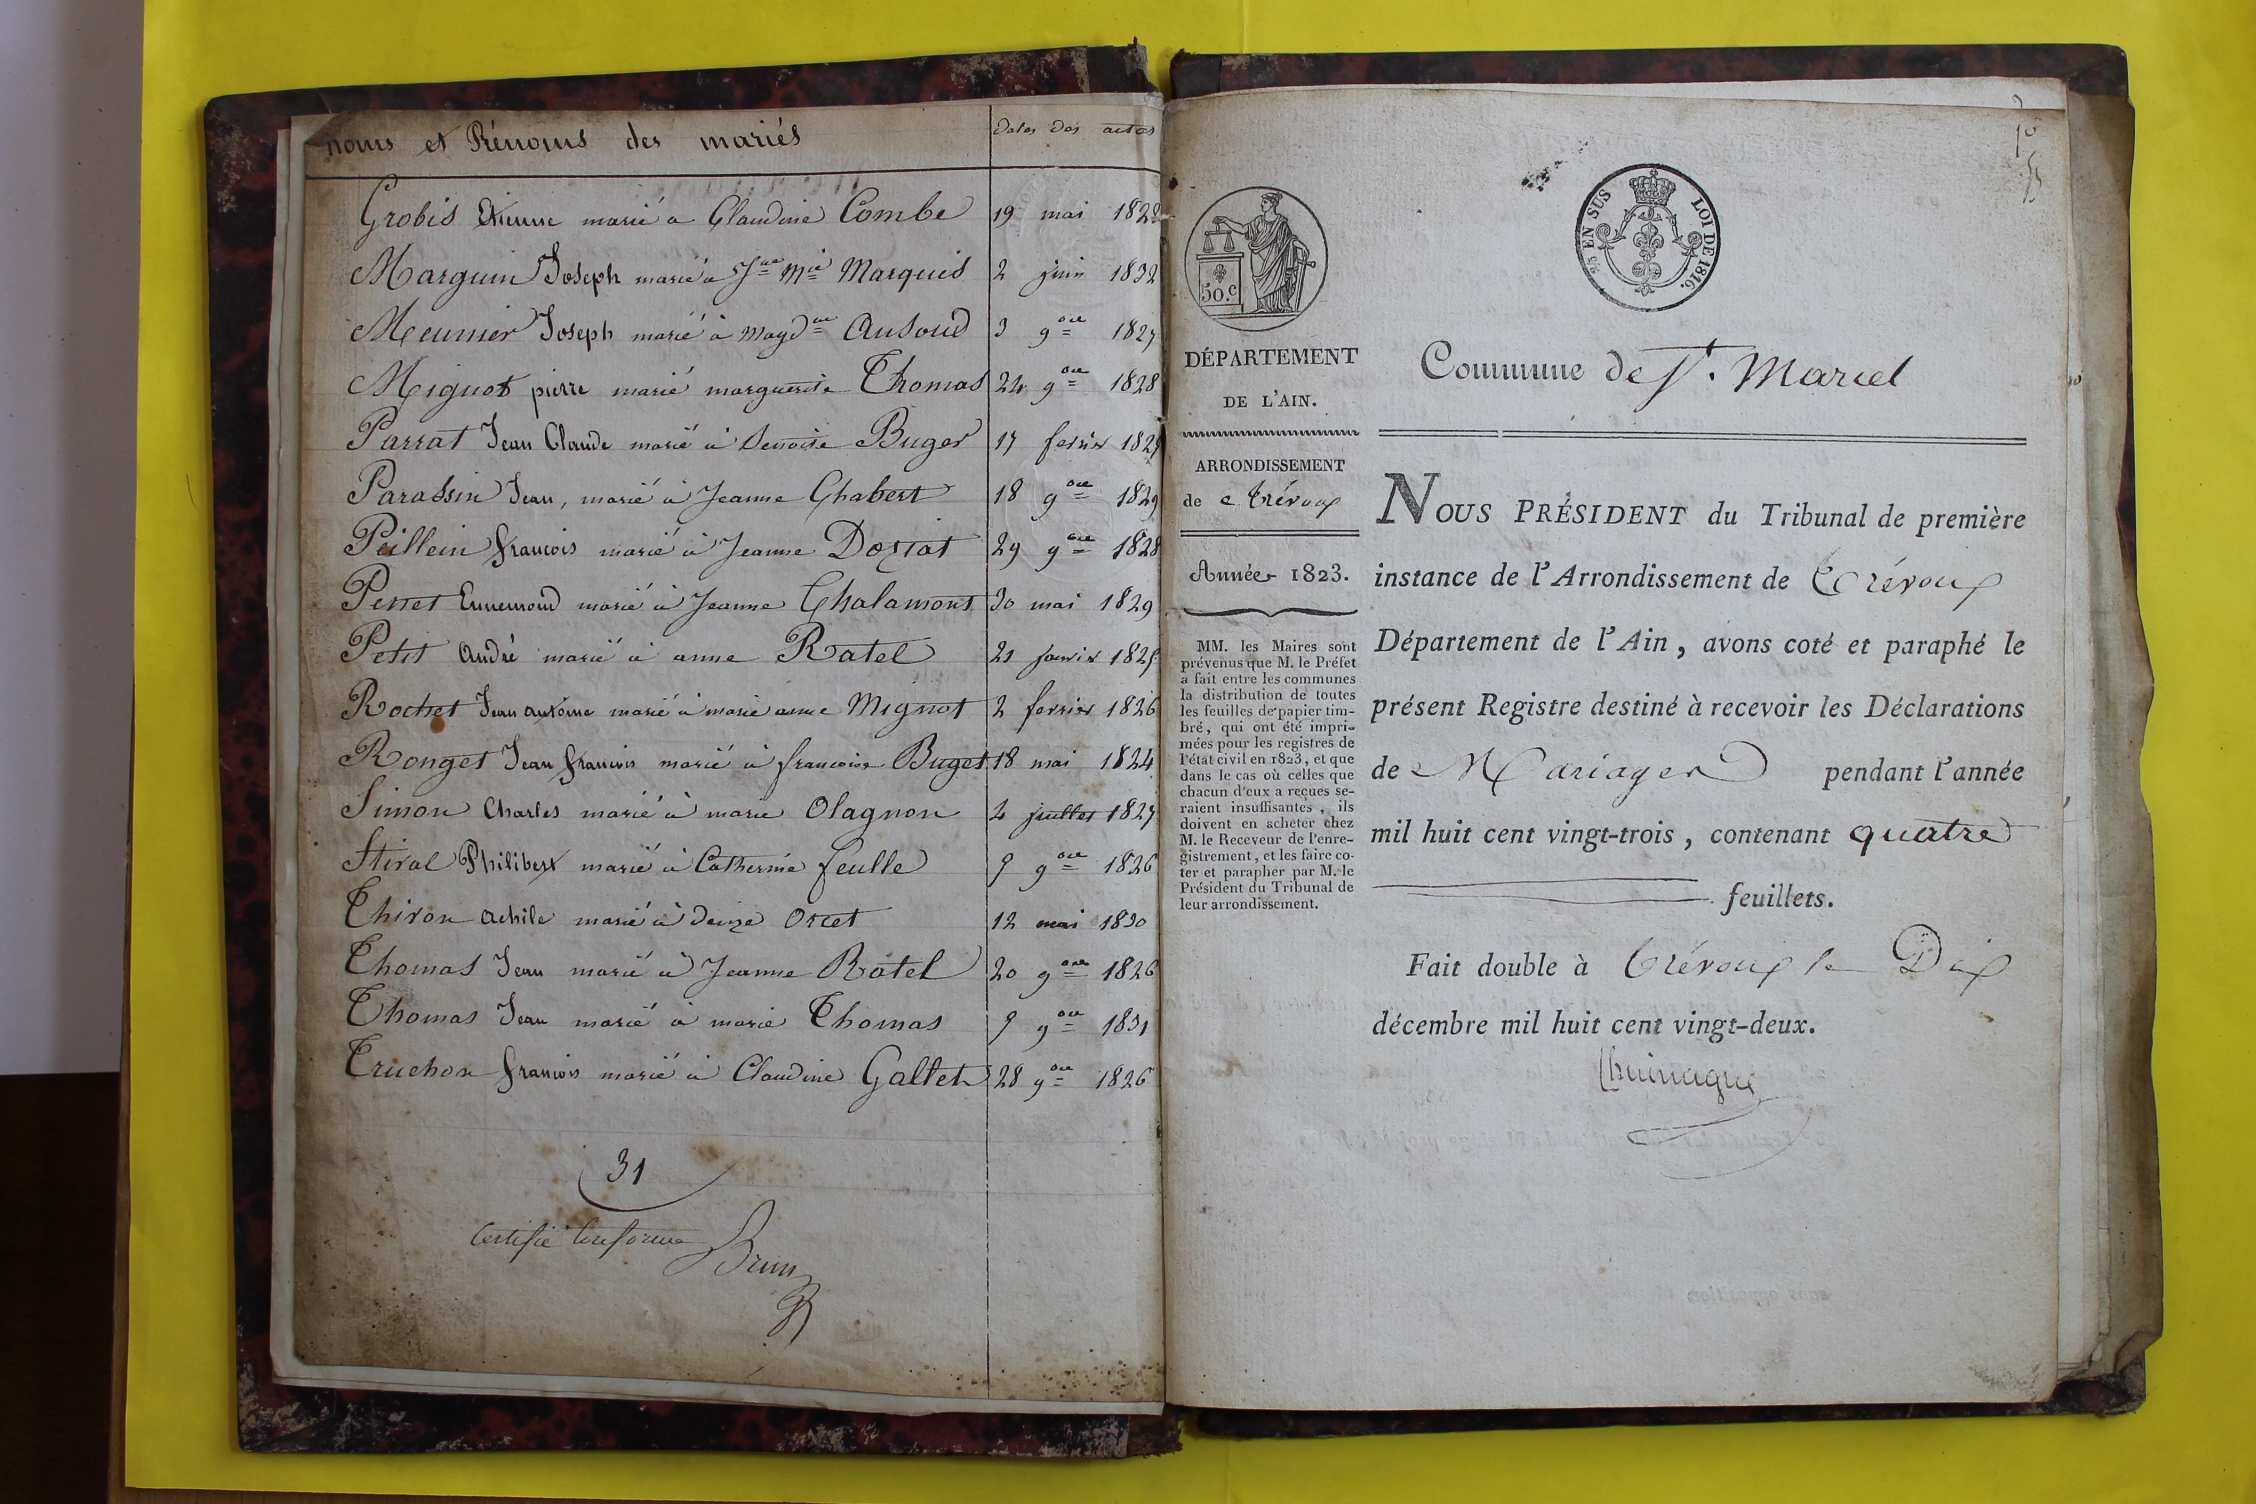 noms et Prénoms des mariés
dates des actes
Grobis Etienne marié a Claudine Combe 19 mai 1822
Marguin Joseph marié à Jne Mie Marquis 2 juin 1832
Meunier Joseph marié à Magdne Ausoud 3 9bre 1827
Mignot pierre marié marguerite Thomas 24 9bre 1828
Parrat Jean Claude marié à Benoite Buger 17 fevrier
Parassin Jean, marié à Jeanne Chabert 18 9bre 1829
Peillein françois marié à Jeanne Doriat 29 9bre 1828
Perret Ennemond marié à Jeanne Chalamont 30 mai 1829
Petit André marié à anne Ratel 21 janvier
Rochet Jean antoine marié à marie anne Mignot 2 fevrier 1826
Ronget Jean françois marié à francoise Buget 18 mai 1824
Simon Charles marié à marie Olagnon 2 juillet 1827
Stiral Philibert marié à Catherine feulle 9 9bre 1826
Thiron Achile marié à Denize Orcet 12 mai 1830
Thomas Jean marié à Jeanne Ratel 20 9bre 1826
Thomas Jean marié à marie Thomas 9 9bre 1831
Truchon françois marié à Claudine Galtet 28 9bre 1826
31
Certifié Conforme
Brun
50.c
25 EN SUS LOI DE 1816.
DÉPARTEMENT
DE L'AIN.
ARRONDISSEMENT
de Trévoux
Année 1823.
MM. les Maires sont
prévenus que M. le Préfet
a fait entre les communes
la distribution de toutes
les feuilles de papier tim-
bré, qui ont été impri-
mées pour les registres de
l'état civil en 1823, et que
dans le cas où celles que
chacun d'eux a reçues se-
raient insuffisantes, ils
doivent en acheter chez
M. le Receveur de l'enre-
gistrement, et les faire co-
ter et parapher par M. le
Président du Tribunal de
leur arrondissement.
Commune de St. Marcel
NOUS PRÉSIDENT du Tribunal de première
instance de l'Arrondissement de Trévoux
Département de l'Ain, avons coté et paraphé le
présent Registre destiné à recevoir les Déclarations
de Mariages pendant l'année
mil huit cent vingt-trois, contenant quatre
feuillets.
Fait double à Trévoux le Dix
décembre mil huit cent vingt-deux.